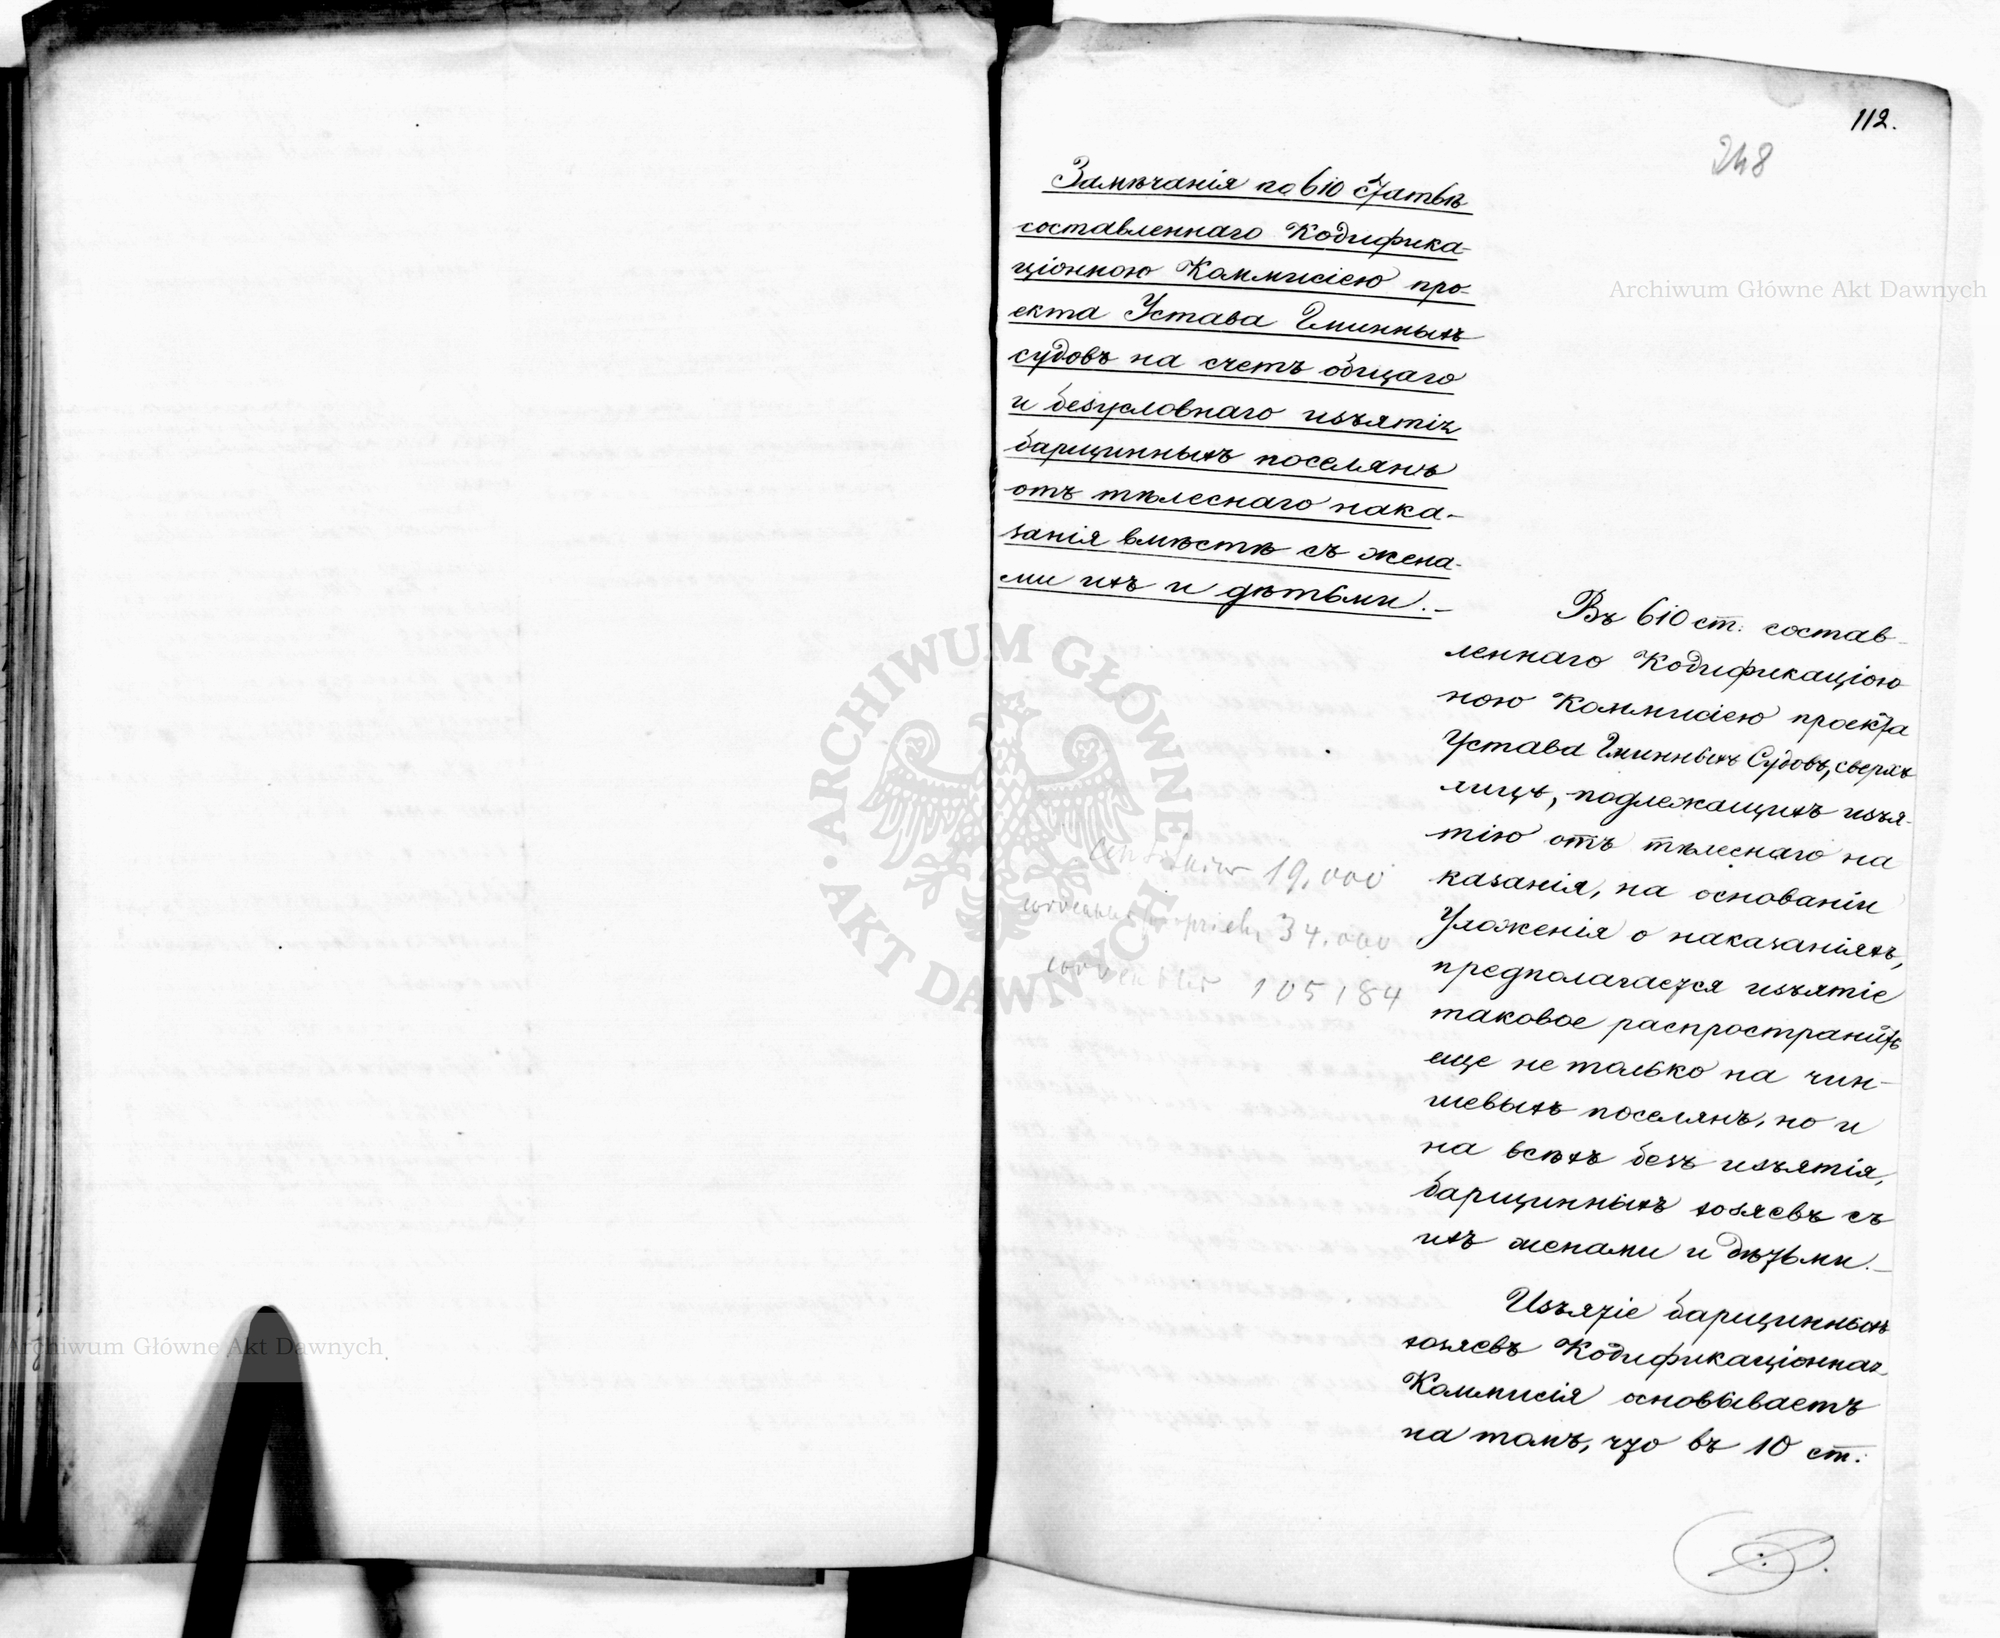 112.
248
Замѣчанія по 610 статьѣ
составленнаго Кодифика-
ціонною Коммисіею про-
екта Устава Гминныхъ
судовъ на счетъ общаго
и безусловнаго изъятія
барщинныхъ поселянъ
отъ тѣлеснаго нака-
занія вмѣстѣ съ жена-
ми ихъ и дѣтьми.—
Въ 610 ст: состав-
леннаго Кодификаціон
ною Коммисіею проекта
Устава Гминныхъ Судовъ, сверхъ
лицъ, подлежащихъ изъя-
тію отъ тѣлеснаго на
казанія, на основаніи
Уложенія о наказаніяхъ,
предполагается изъятіе
таковое распространить
еще не только на чин-
шевыхъ поселянъ, но и
на всѣхъ безъ изъятія,
барщинныхъ хозяевъ съ
ихъ женами и дѣтьми.—
Изъятіе барщинныхъ
хозяевъ Кодификаціонная
Коммисія основываетъ
на томъ, что въ 10 ст:
19.000
34.000
105184
Archiwum Główne Akt Dawnych
ARCHIWUM GŁÓWNE
AKT DAWNYCH
Archiwum Główne Akt Dawnych